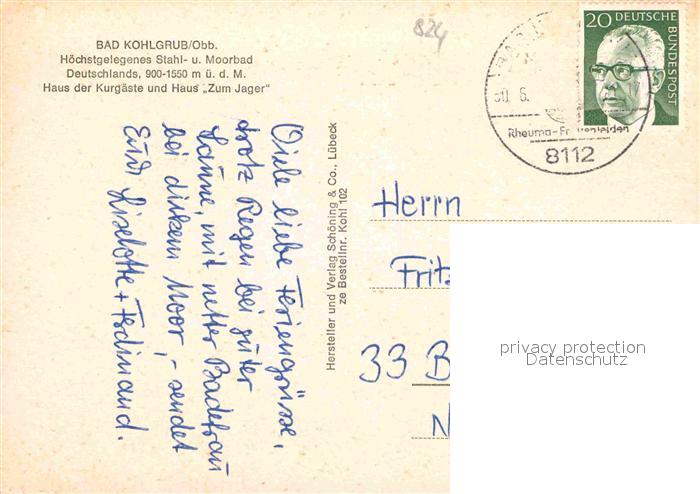 BAD KOHLGRUB/Obb.
Höchstgelegenes Stahl- u. Moorbad
Deutschlands, 900-1550 m ü. d. M.
Haus der Kurgäste und Haus „Zum Jager"
824
20 DEUTSCHE
BUNDESPOST
6.
Rheuma-Fr
leiden
8112
Viele liebe Feriengrüsse,
trotz Regen bei guter
Laune, mit netter Badefrau
bei dickem Moor, - sendet
Euch Liselotte + Ferdinand.
Hersteller und Verlag Schöning & Co., Lübeck
ze Bestellnr. Kohl 102
Herrn
Fritz
33 B
N
privacy protection
Datenschutz